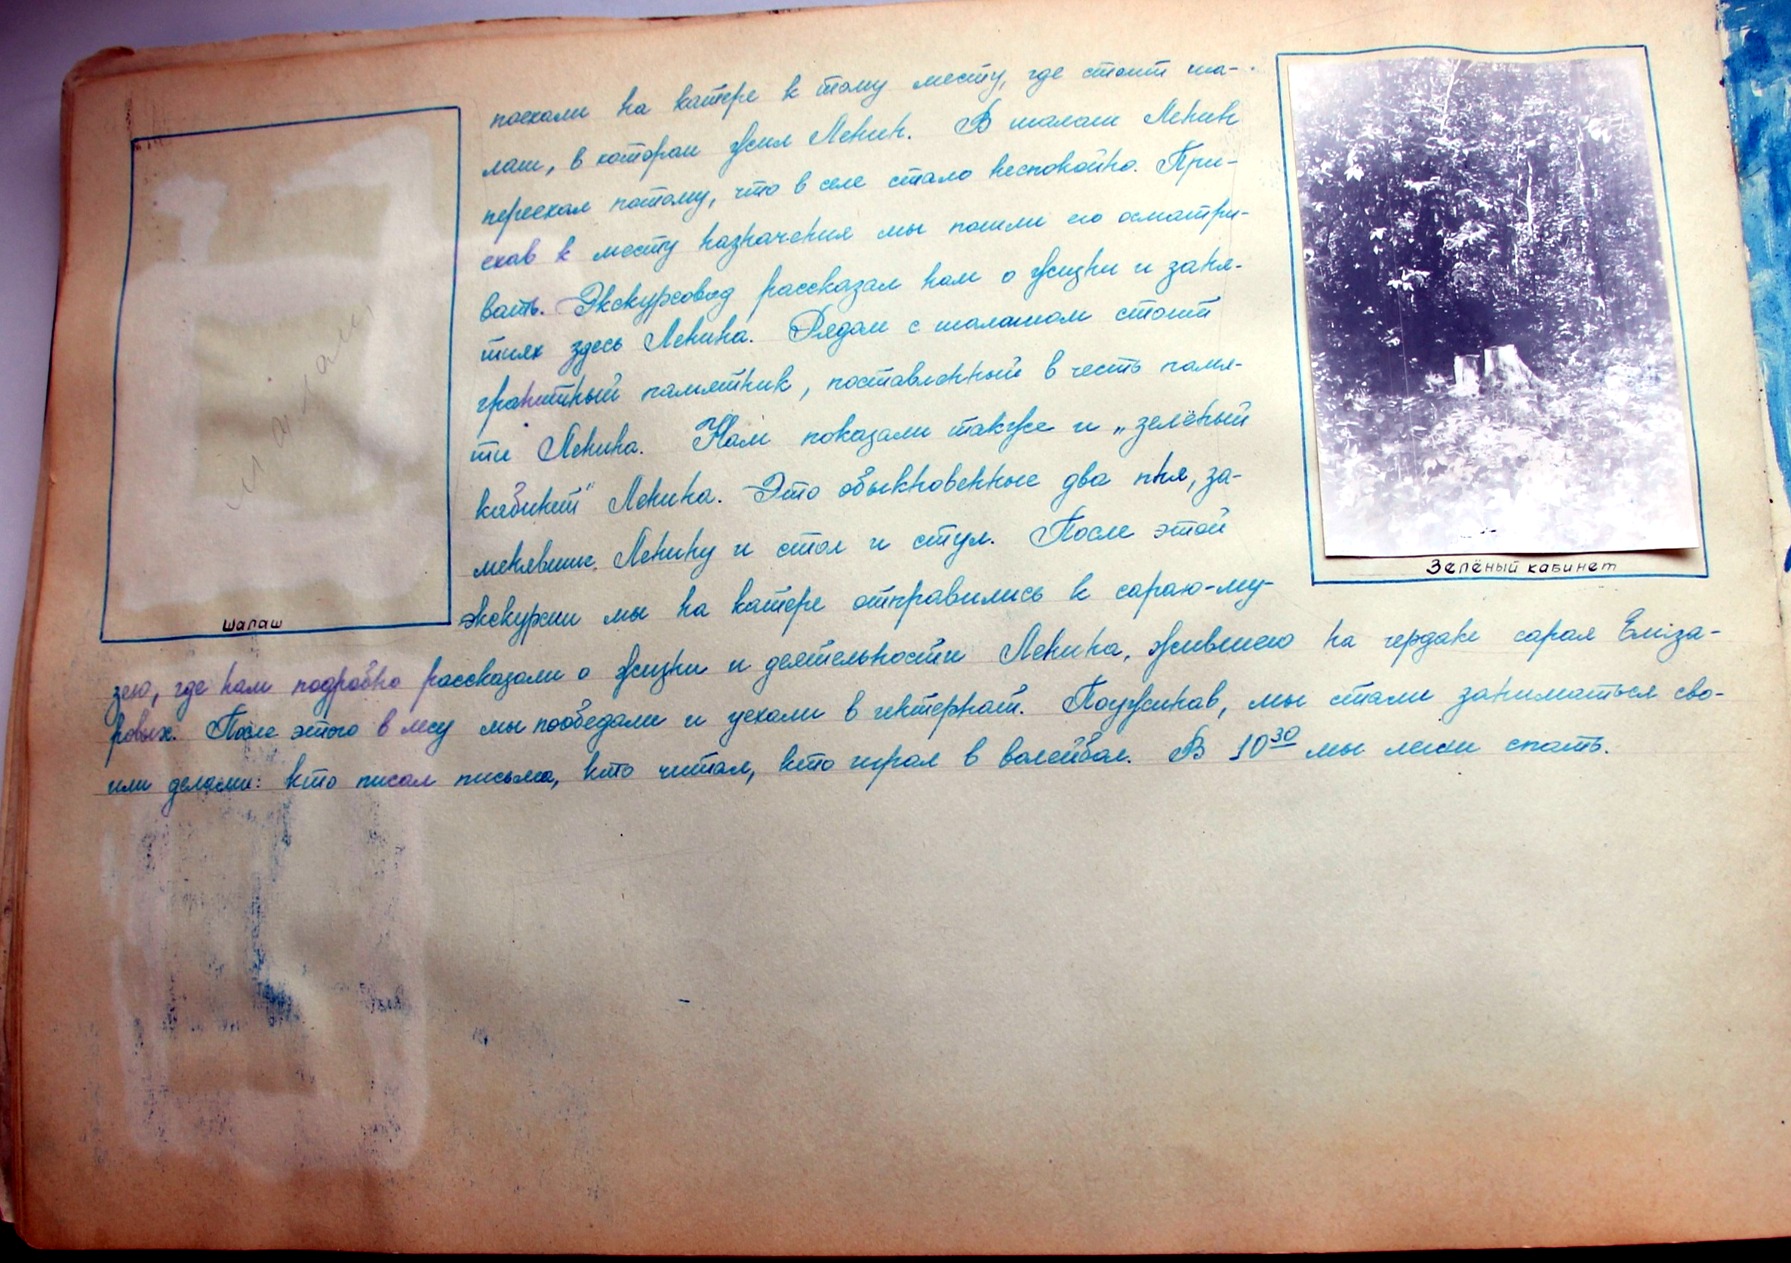 поехали на катере к тому месту, где стоит ша-
лаш, в котором жил Ленин. В шалаш Ленин
переехал потому, что в селе стало неспокойно. При-
ехав к месту назначения мы пошли его осматри-
вать. Экскурсовод рассказал нам о жизни и заня-
тиях здесь Ленина. Рядом с шалашом стоит
гранитный памятник, поставленный в честь памя-
ти Ленина. Нам показали также и „зелёный
кабинет" Ленина. Это обыкновенные два пня, за-
менявшие Ленину и стол и стул. После этой
экскурсии мы на катере отправились к сараю-му-
зею, где нам подробно рассказали о жизни и деятельности Ленина, жившего на чердаке сарая Емiза-
ровых. После этого в лесу мы пообедали и уехали в интернат. Поужинав, мы стали заниматься сво-
ими делами: кто писал письма, кто читал, кто играл в волейбол. В 10 30 мы легли спать.
шалаш
шалаш
Зелёный кабинет